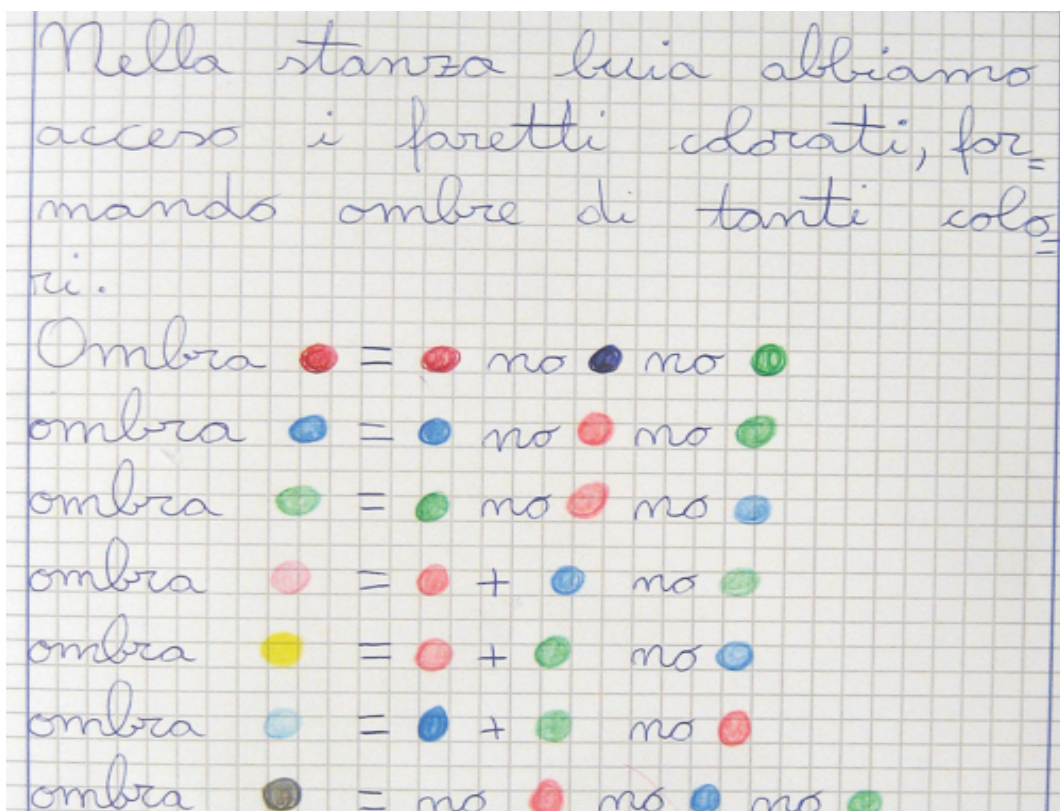 Nella stanza buia abbiamo
acceso i faretti colorati, for=
mando ombre di tanti colo=
ri.
Ombra = no no
ombra = no no
ombra = no no
ombra = + no
ombra = + no
ombra = + no
ombra = no no no